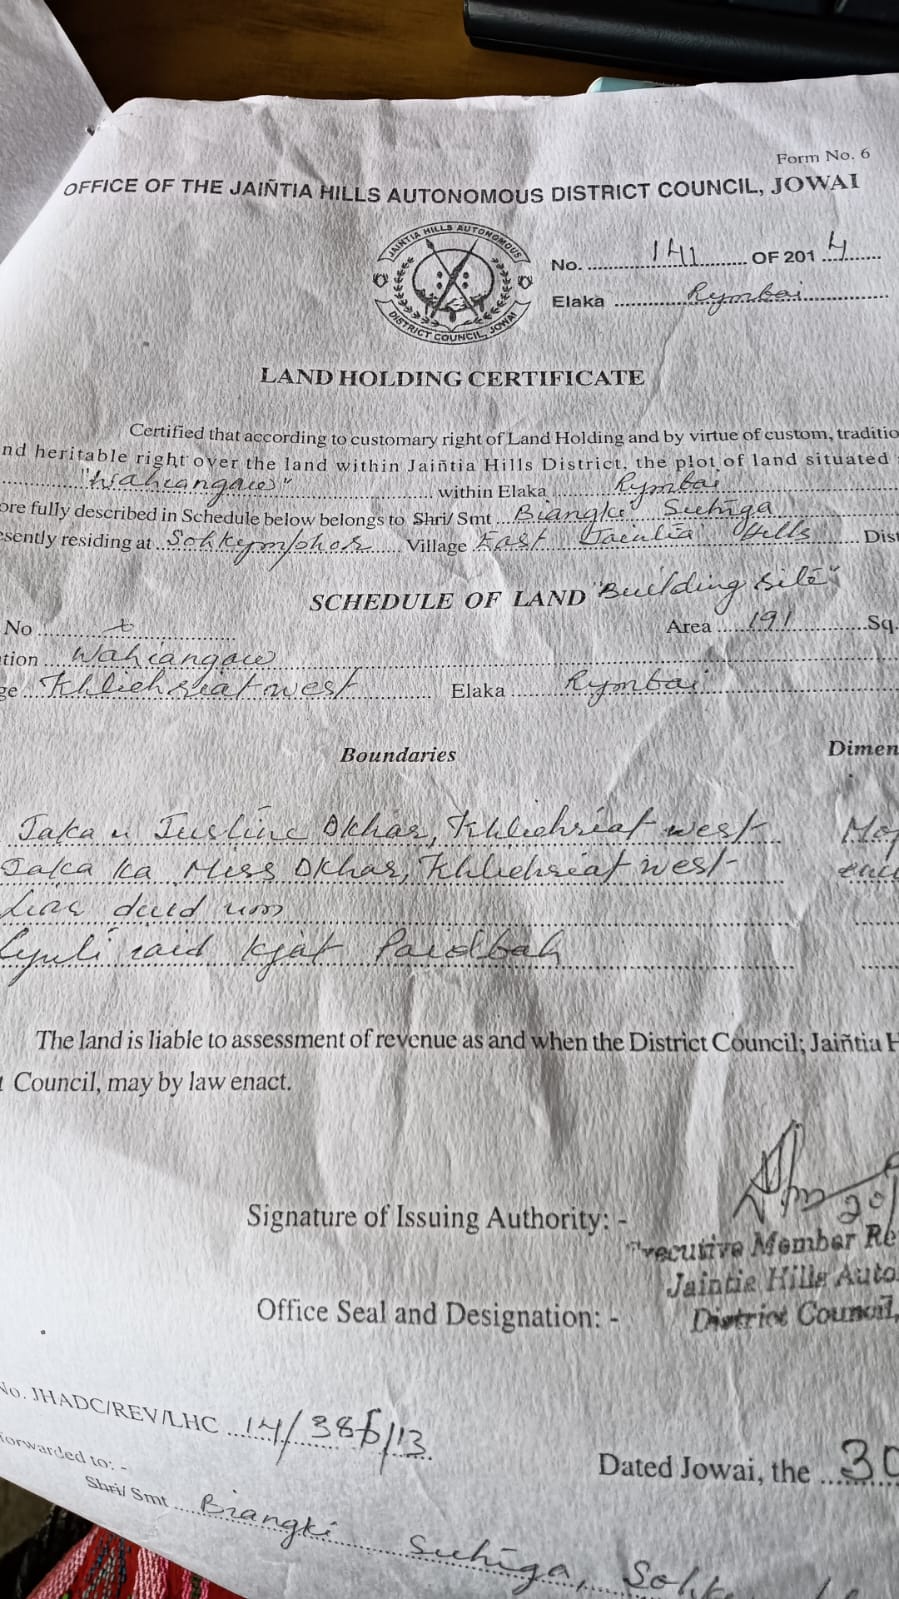 Form No. 6
OFFICE OF THE JAIÑTIA HILLS AUTONOMOUS DISTRICT COUNCIL, JOWAI
JAIÑTIA HILLS AUTONOMOUS
DISTRICT COUNCIL, JOWAI
No. 141 OF 2014
Elaka Rymbai
LAND HOLDING CERTIFICATE
Certified that according to customary right of Land Holding and by virtue of custom, traditio
nd heritable right over the land within Jaiñtia Hills District, the plot of land situated
"Wahiangaw" within Elaka Rymbai
ore fully described in Schedule below belongs to Shri/ Smt Biangki Suchiga
esently residing at Sohkymphor Village East Jaintia Hills Dist
SCHEDULE OF LAND "Building site"
No Area 191 Sq.
tion Wahiangaw
ge Khliehriat west Elaka Rymbai
Boundaries Dimen
Jaka u Justine Dkhar, Khliehriat west
Jaka ka Miss Dkhar, Khliehriat west
um
raid kjat Paidbah
The land is liable to assessment of revenue as and when the District Council; Jaiñtia H
Council, may by law enact.
Signature of Issuing Authority: -
Executive Member Re
Jaintia Hills Auto
Office Seal and Designation: - District Council,
No. JHADC/REV/LHC 14/386/13
forwarded to: - Dated Jowai, the 30
Shri/ Smt Biangki Suchiga,